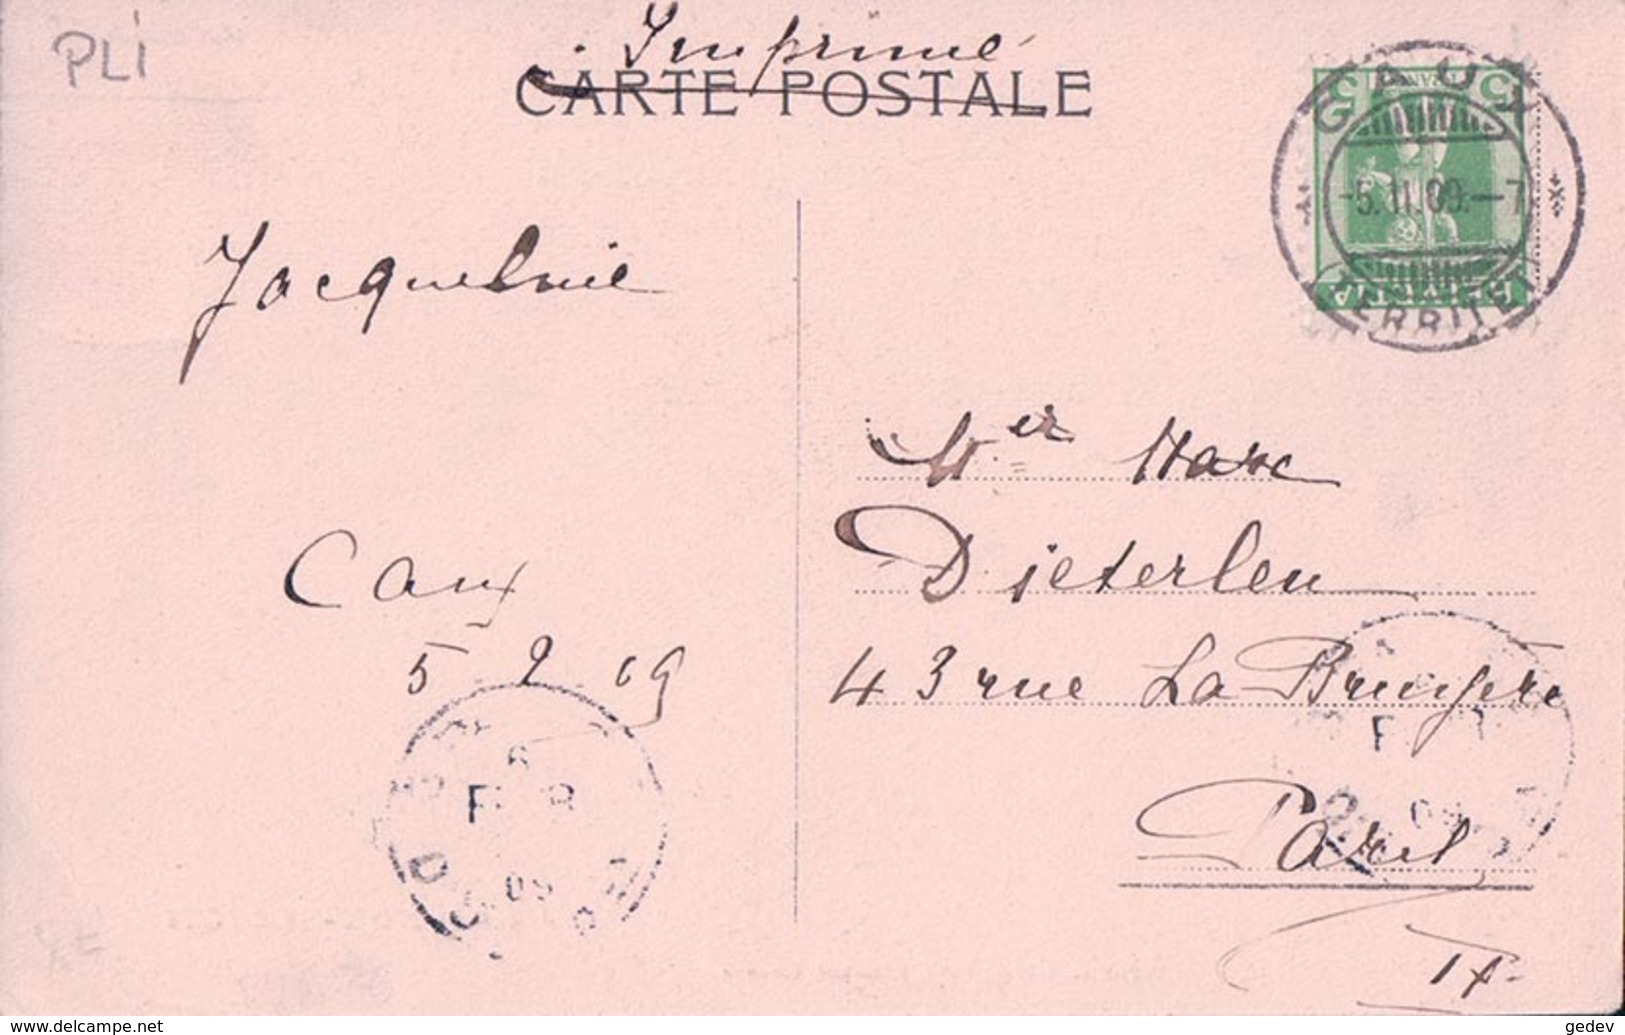 PLI
Imprimé
CARTE POSTALE
5
CAUX
-5.II.09.-7
HELVETIA
(TERRITET)
Jacqueline
Caux
5.2.09
Mer Marc
Dieterlen
43 rue La Bruyère
Paris
IX
6
FEVR
09
09
www.delcampe.net
gedev